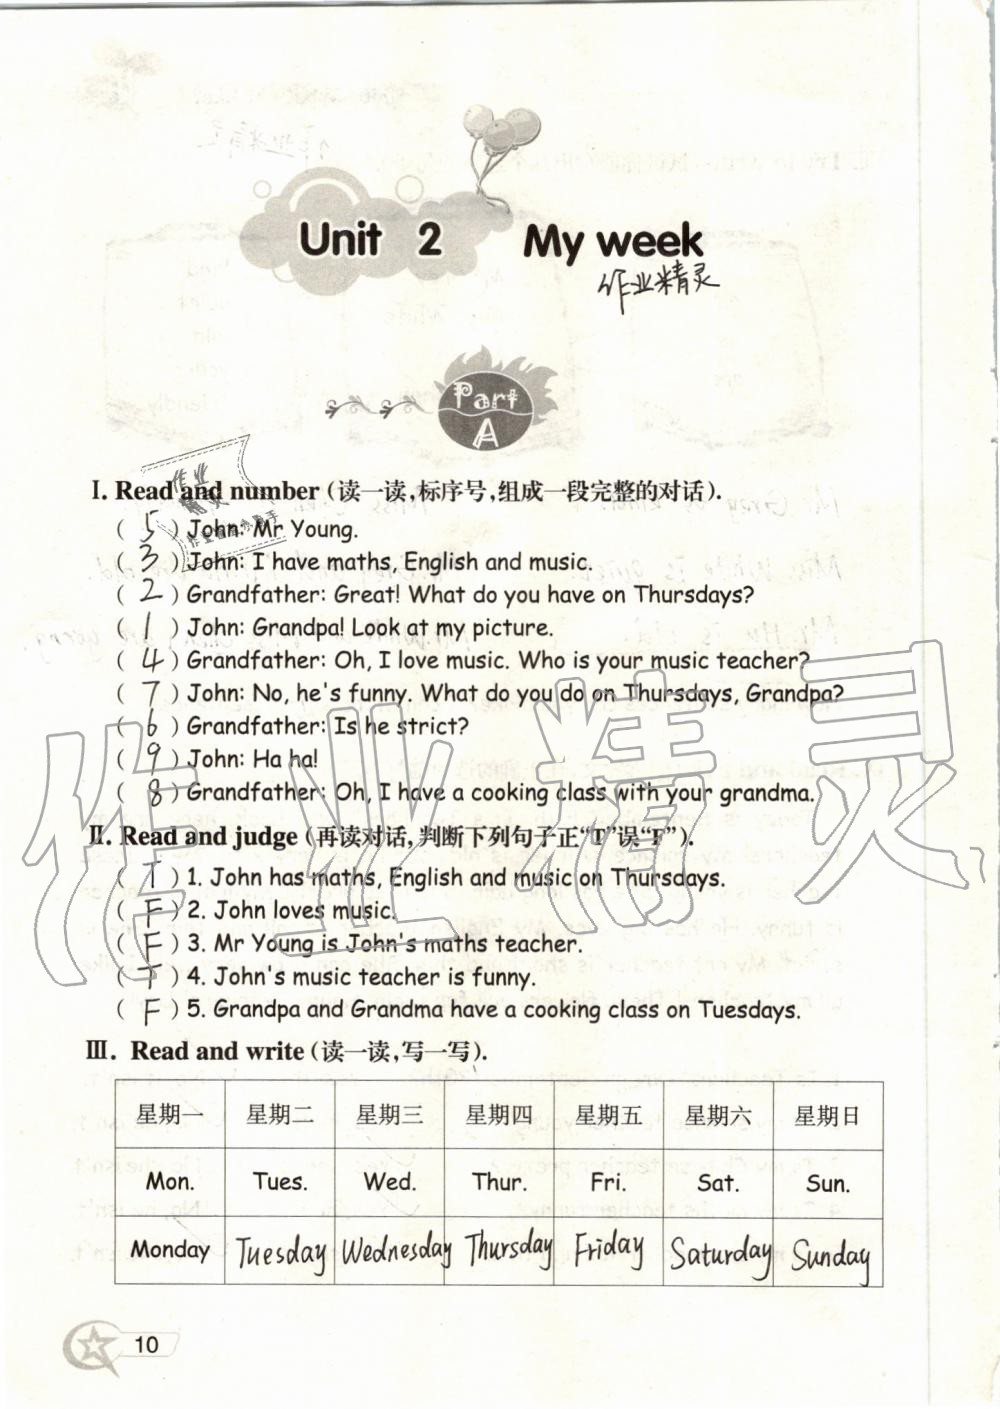 Unit 2 My week
作业精灵
Part
A
Ⅰ. Read and number (读一读,标序号,组成一段完整的对话).
( 5 ) John: Mr Young.
( 3 ) John: I have maths, English and music.
( 2 ) Grandfather: Great! What do you have on Thursdays?
( 1 ) John: Grandpa! Look at my picture.
( 4 ) Grandfather: Oh, I love music. Who is your music teacher?
( 7 ) John: No, he's funny. What do you do on Thursdays, Grandpa?
( 6 ) Grandfather: Is he strict?
( 9 ) John: Ha ha!
( 8 ) Grandfather: Oh, I have a cooking class with your grandma.
Ⅱ. Read and judge (再读对话,判断下列句子正“T”误“F”).
( T ) 1. John has maths, English and music on Thursdays.
( F ) 2. John loves music.
( F ) 3. Mr Young is John's maths teacher.
( T ) 4. John's music teacher is funny.
( F ) 5. Grandpa and Grandma have a cooking class on Tuesdays.
Ⅲ. Read and write (读一读,写一写).
星期一 星期二 星期三 星期四 星期五 星期六 星期日
Mon. Tues. Wed. Thur. Fri. Sat. Sun.
Monday Tuesday Wednesday Thursday Friday Saturday Sunday
10
作业精灵